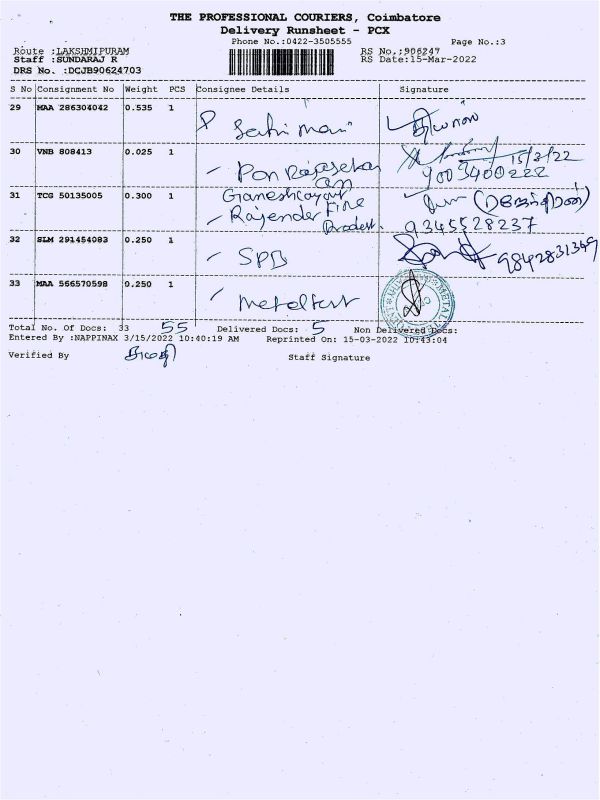 THE PROFESSIONAL COURIERS, Coimbatore
Delivery Runsheet - PCX
Phone No.:0422-3505555
Page No.:3
Route :LAKSHMIPURAM
RS No.:906247
Staff :SUNDARAJ R
RS Date:15-Mar-2022
DRS No. :DCJB90624703
S No Consignment No Weight PCS Consignee Details Signature
29 MAA 286304042 0.535 1
30 VNB 808413 0.025 1 15/3/22
9003400222
31 TCG 50135005 0.300 1
Rajender Fine 9345528237
32 SLM 291454083 0.250 1 SPB 9842831349
33 MAA 566570598 0.250 1 metaltest
Total No. Of Docs: 33 55 Delivered Docs: 5 Non Delivered Docs:
Entered By :NAPPINAX 3/15/2022 10:40:19 AM Reprinted On: 15-03-2022 10:43:04
Verified By
Staff Signature